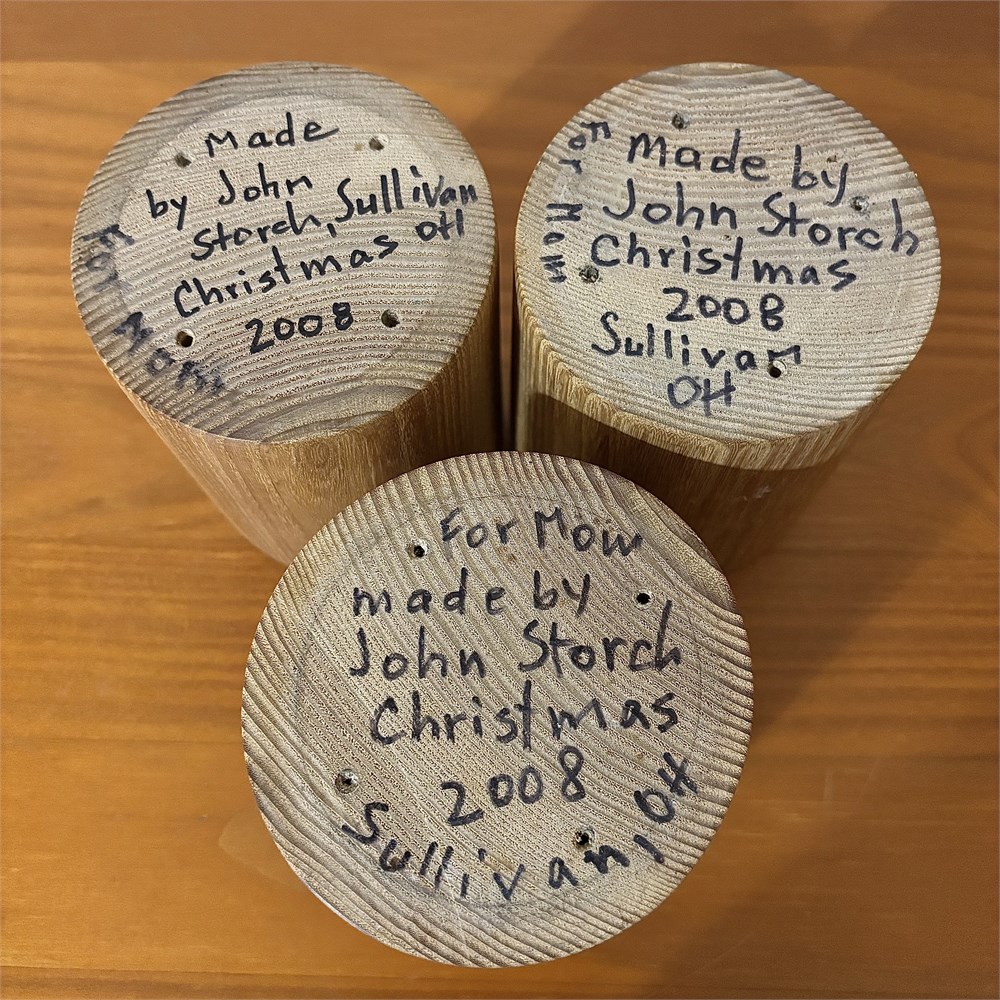 Made
by John
Storch, Sullivan
OH
Christmas
2008
For Mom
Made by
John Storch
Christmas
2008
Sullivan
OH
For Mom
For Mom
made by
John Storch
Christmas
2008
Sullivan, OH